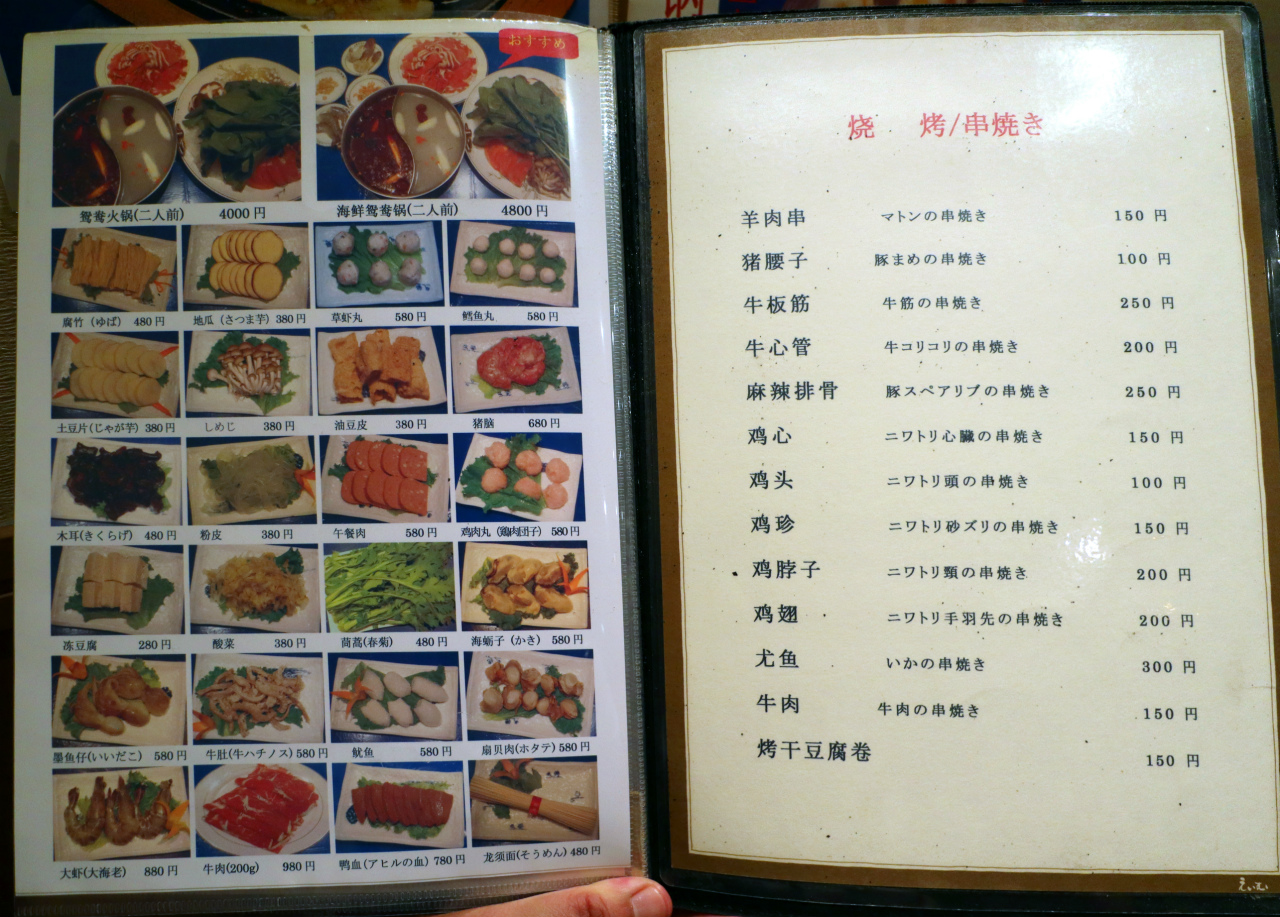 おすすめ
鸳鸯火锅(二人前) 4000円 海鲜鸳鸯锅(二人前) 4800円
腐竹(ゆば) 480円 地瓜(さつま芋) 380円 草虾丸 580円 鳕鱼丸 580円
土豆片(じゃが芋) 380円 しめじ 380円 油豆皮 380円 猪脑 680円
木耳(きくらげ) 480円 粉皮 380円 午餐肉 580円 鸡肉丸(鶏肉団子) 580円
冻豆腐 280円 酸菜 380円 茼蒿(春菊) 480円 海蛎子(かき) 580円
墨鱼仔(いいだこ) 580円 牛肚(牛ハチノス) 580円 鱿鱼 580円 扇贝肉(ホタテ) 580円
大虾(大海老) 880円 牛肉(200g) 980円 鸭血(アヒルの血) 780円 龙须面(そうめん) 480円
烧 烤/串焼き
羊肉串 マトンの串焼き 150 円
猪腰子 豚まめの串焼き 100 円
牛板筋 牛筋の串焼き 250 円
牛心管 牛コリコリの串焼き 200 円
麻辣排骨 豚スペアリブの串焼き 250 円
鸡心 ニワトリ心臓の串焼き 150 円
鸡头 ニワトリ頭の串焼き 100 円
鸡珍 ニワトリ砂ズリの串焼き 150 円
鸡脖子 ニワトリ頸の串焼き 200 円
鸡翅 ニワトリ手羽先の串焼き 200 円
尤鱼 いかの串焼き 300 円
牛肉 牛肉の串焼き 150 円
烤干豆腐卷 150 円
えいむ